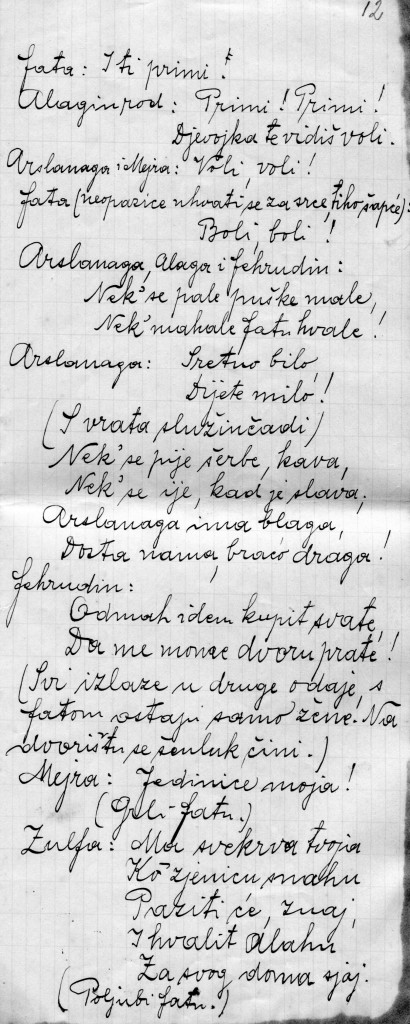 12
Fata: I ti primi!
Alagin rod: Primi! Primi!
Djevojka te vidiš voli.
Arslanaga i Mejra: Voli, voli!
Fata (neopazice uhvati se za srce, tiho šapće):
Boli, boli!
Arslanaga, Alaga i Fehrudin:
Nek' se pale puške male,
Nek' mahale Fatu hvale!
Arslanaga: Sretno bilo,
Dijete milo!
(S vrata služinčadi)
Nek' se pije šerbe, kava,
Nek' se ije, kad je slava;
Arslanaga ima blaga,
Dosta nama, braćo draga!
Fehrudin:
Odmah idem kupit svate,
Da me momce dvoru prate!
(Svi izlaze u druge odaje, s
Fatom ostaju samo žene. Na
dvorištu se šenluk čini.)
Mejra: Jedinice moja!
(Grli Fatu.)
Zulfa: Ma svekrva tvoja
Ko zjenicu snahu
Paziti će, znaj,
I hvalit Alahu
Za svog doma sjaj.
(Poljubi Fatu.)